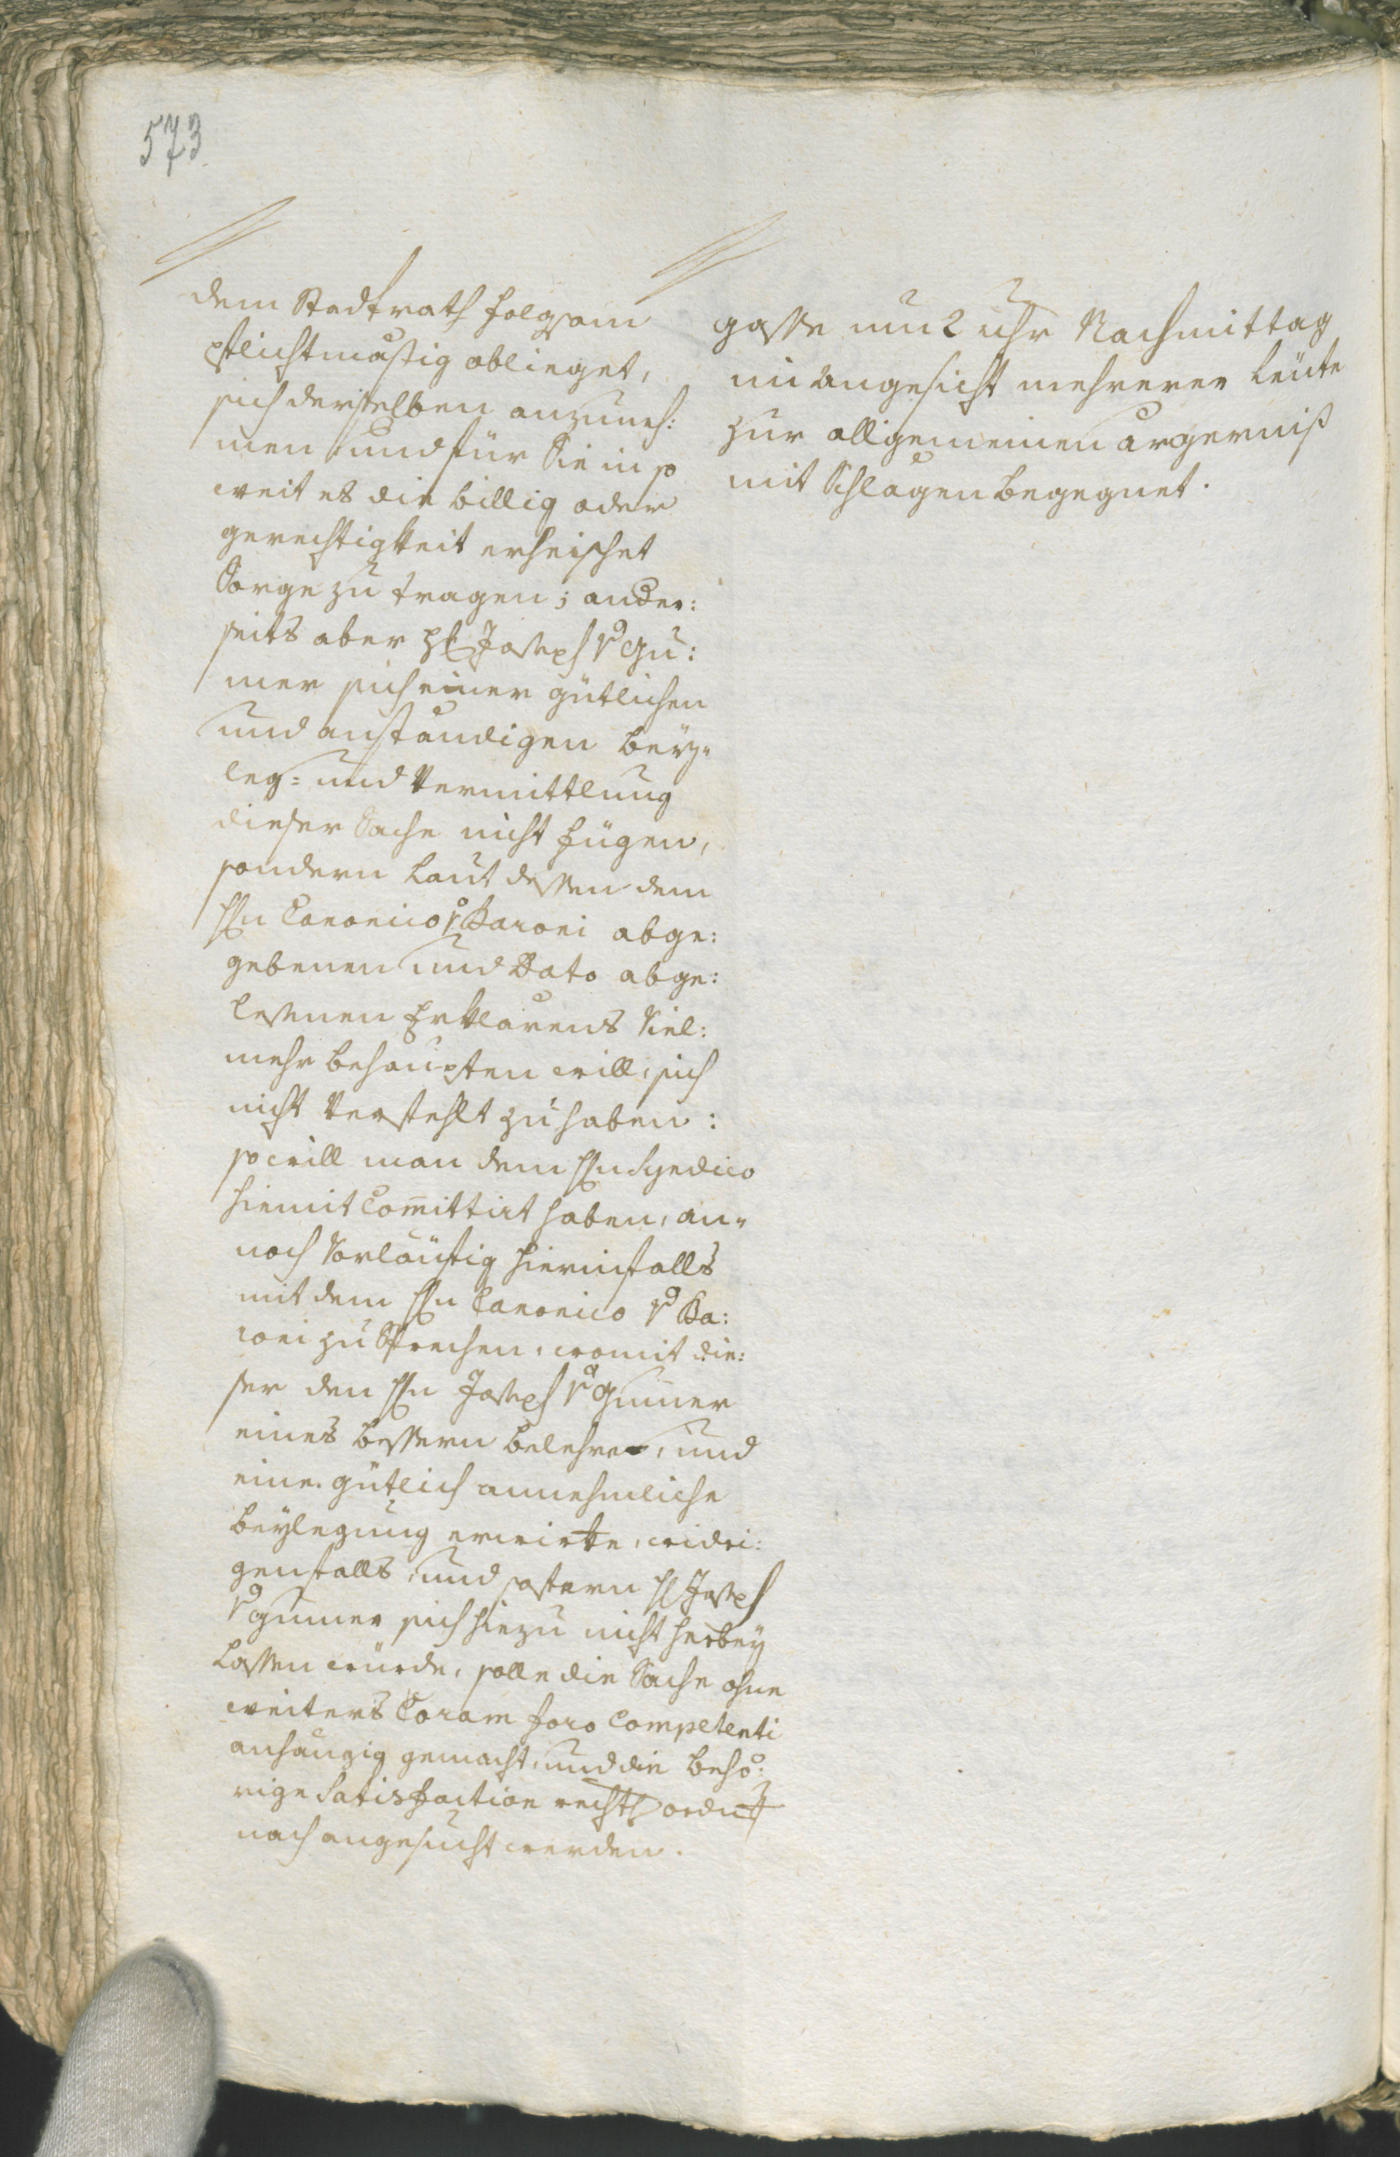 573
dem Stadtrath folgsam
pflichtmäßig oblieget,
sich derselben anzuneh:
men und für Sie in so
weit es die billig oder
gerechtigkeit erheischet
Sorge zu tragen; ander:
seits aber H: Joseph v Gu:
mer sich einer gütlichen
und anständigen bey=
leg= und Vermittlung
dieser Sache nicht fügen,
sondern laut dessen dem
Hn Canonico v Baroni abge:
gebenen und Dato abge:
lesenen Erklärens Viel:
mehr behaupten will, sich
nicht Verfehlt zu haben:
so will man dem Hn Syndico
hiemit Com̄ittirt haben, an=
noch Vorläufig hierinfalls
mit dem Hn Canonico v Ba:
roni zu Sprechen, womit die:
ser den Hn Joseph v Gumer
eines bessern belehre, und
eine gütlich annehmliche
beylegung erwirke, widri:
genfalls, und sofern H Joseph
v Gumer sich hiezu nicht herbey
lassen würde, solle die Sache ohne
weiters Coram foro Competenti
anhängig gemacht, und die behö:
rige Satisfaction rechts
nach angesucht werden.
gasse um 2 uhr Nachmittag
im Angesicht mehrerer Leüte
zur allgemeinen ärgerniß
mit Schlägen begegnet.